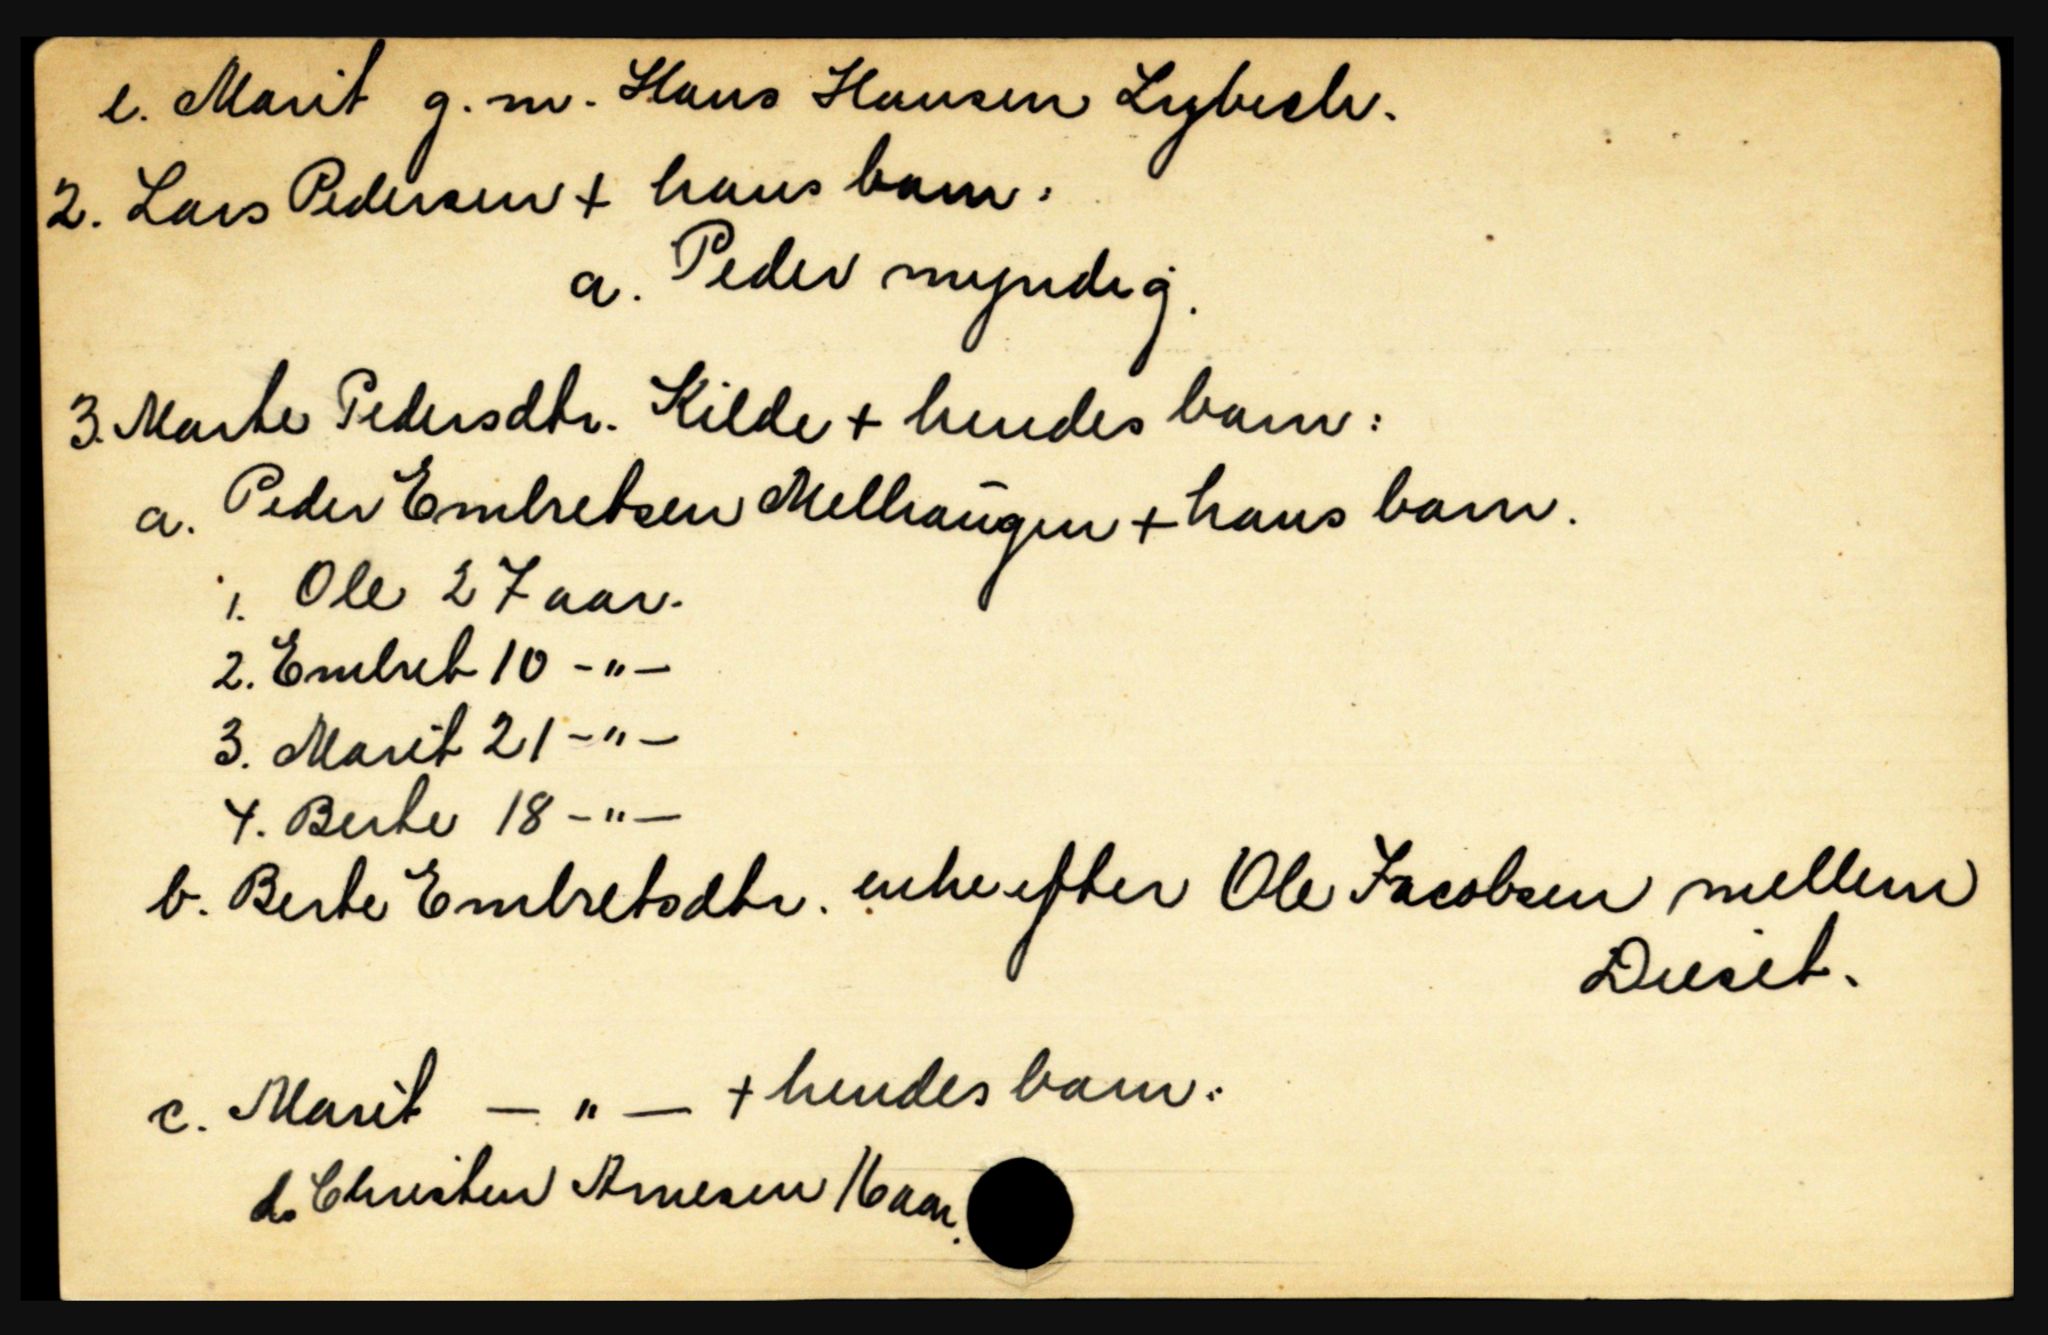 e. Marit g. m. Hans Hansen Lybeck.
2. Lars Pedersen + hans barn:
a. Peder myndig.
3. Marte Pedersdtr. Kilde + hendes barn:
a. Peder Embretsen Melhaugen + hans barn.
1. Ole 27 aar.
2. Embret 10 -"-
3. Marit 21 -"-
4. Berte 18 -"-
b. Berte Embretsdtr. enke efter Ole Jacobsen mellem
Deset.
c. Marit - " - + hendes barn:
d. Christen Arnesen 16 aar.